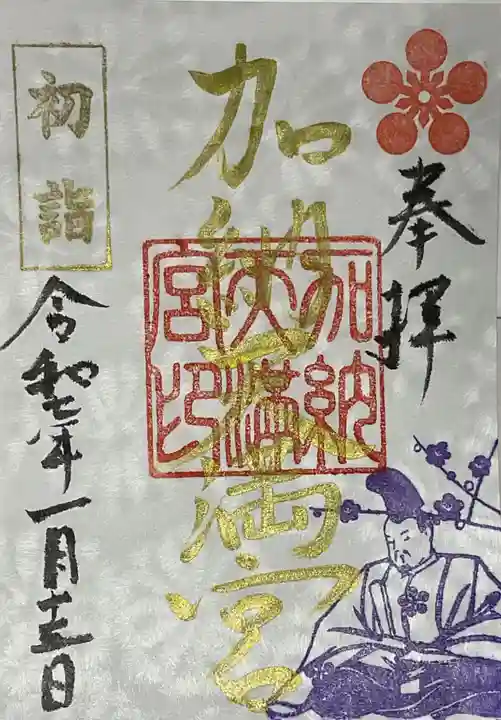 奉拝
加納天満宮
加納
天満
宮印
初詣
令和七年一月十五日